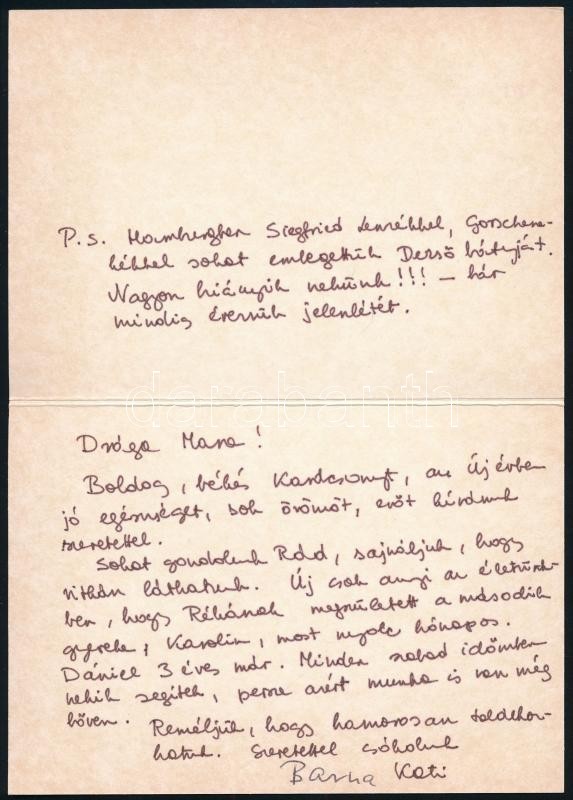 P.s. Hamburgban Siegfried Lenzékkel, Gorschene-
kékkel sokat emlegettük Dezső bátyját.
Nagyon hiányzik nekünk!!! – bár
mindig érezzük jelenlétét.
darabanth
Drága Mara!
Boldog, békés Karácsonyt, az Új évben
jó egészséget, sok örömöt, erőt kívánunk
szeretettel.
Sokat gondolunk Rád, sajnáljuk, hogy
ritkán láthatunk. Új csak annyi az életünk-
ben, hogy Rékának megszületett a második
gyereke, Karolin, most nyolc hónapos.
Dániel 3 éves már. Minden szabad időmben
nekik segítek, persze azért munka is van még
bőven. Reméljük, hogy hamarosan találkoz-
hatunk. Szeretettel csókolunk
Barna Kati